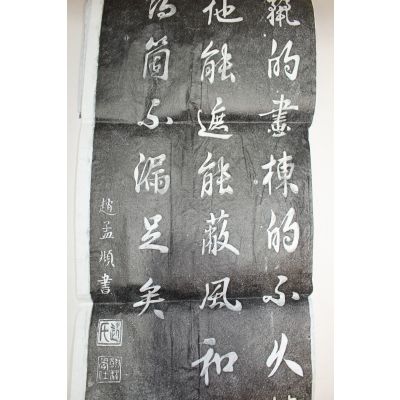 的畫棟的不久
他能遮能蔽風和
箇不漏足矣
趙孟順書
趙氏